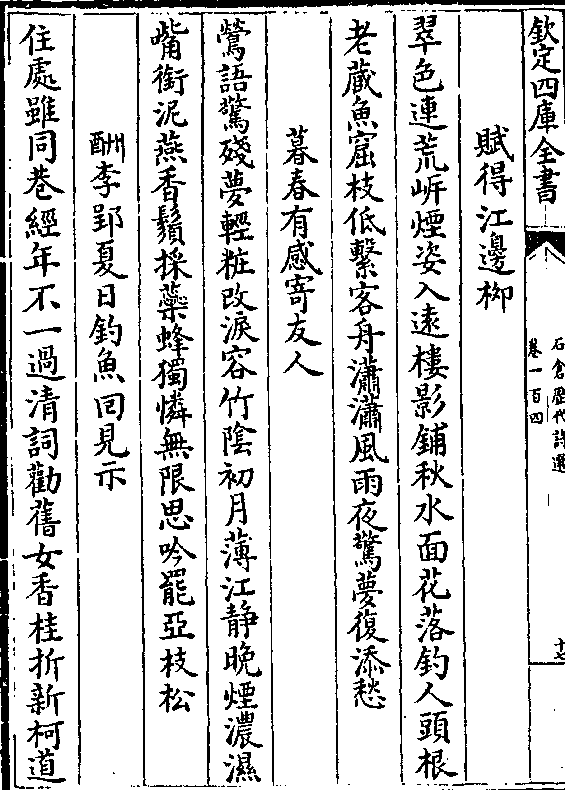 欽定四庫全書
石倉歷代詩選
卷一百四
十七
賦得江邊柳
翠色連荒岍煙姿入逺樓影鋪秋水面花落釣人頭根
老藏魚窟枝低繫客舟瀟瀟風雨夜驚夢復添愁
暮春有感寄友人
鶯語驚殘夢輕粧改淚容竹陰初月薄江靜晩煙濃濕
嘴銜泥燕香鬚採蘂蜂獨憐無限思吟罷亞枝松
酬李郢夏日釣魚回見示
住處雖同巷經年不一過清詞勸舊女香桂折新柯道